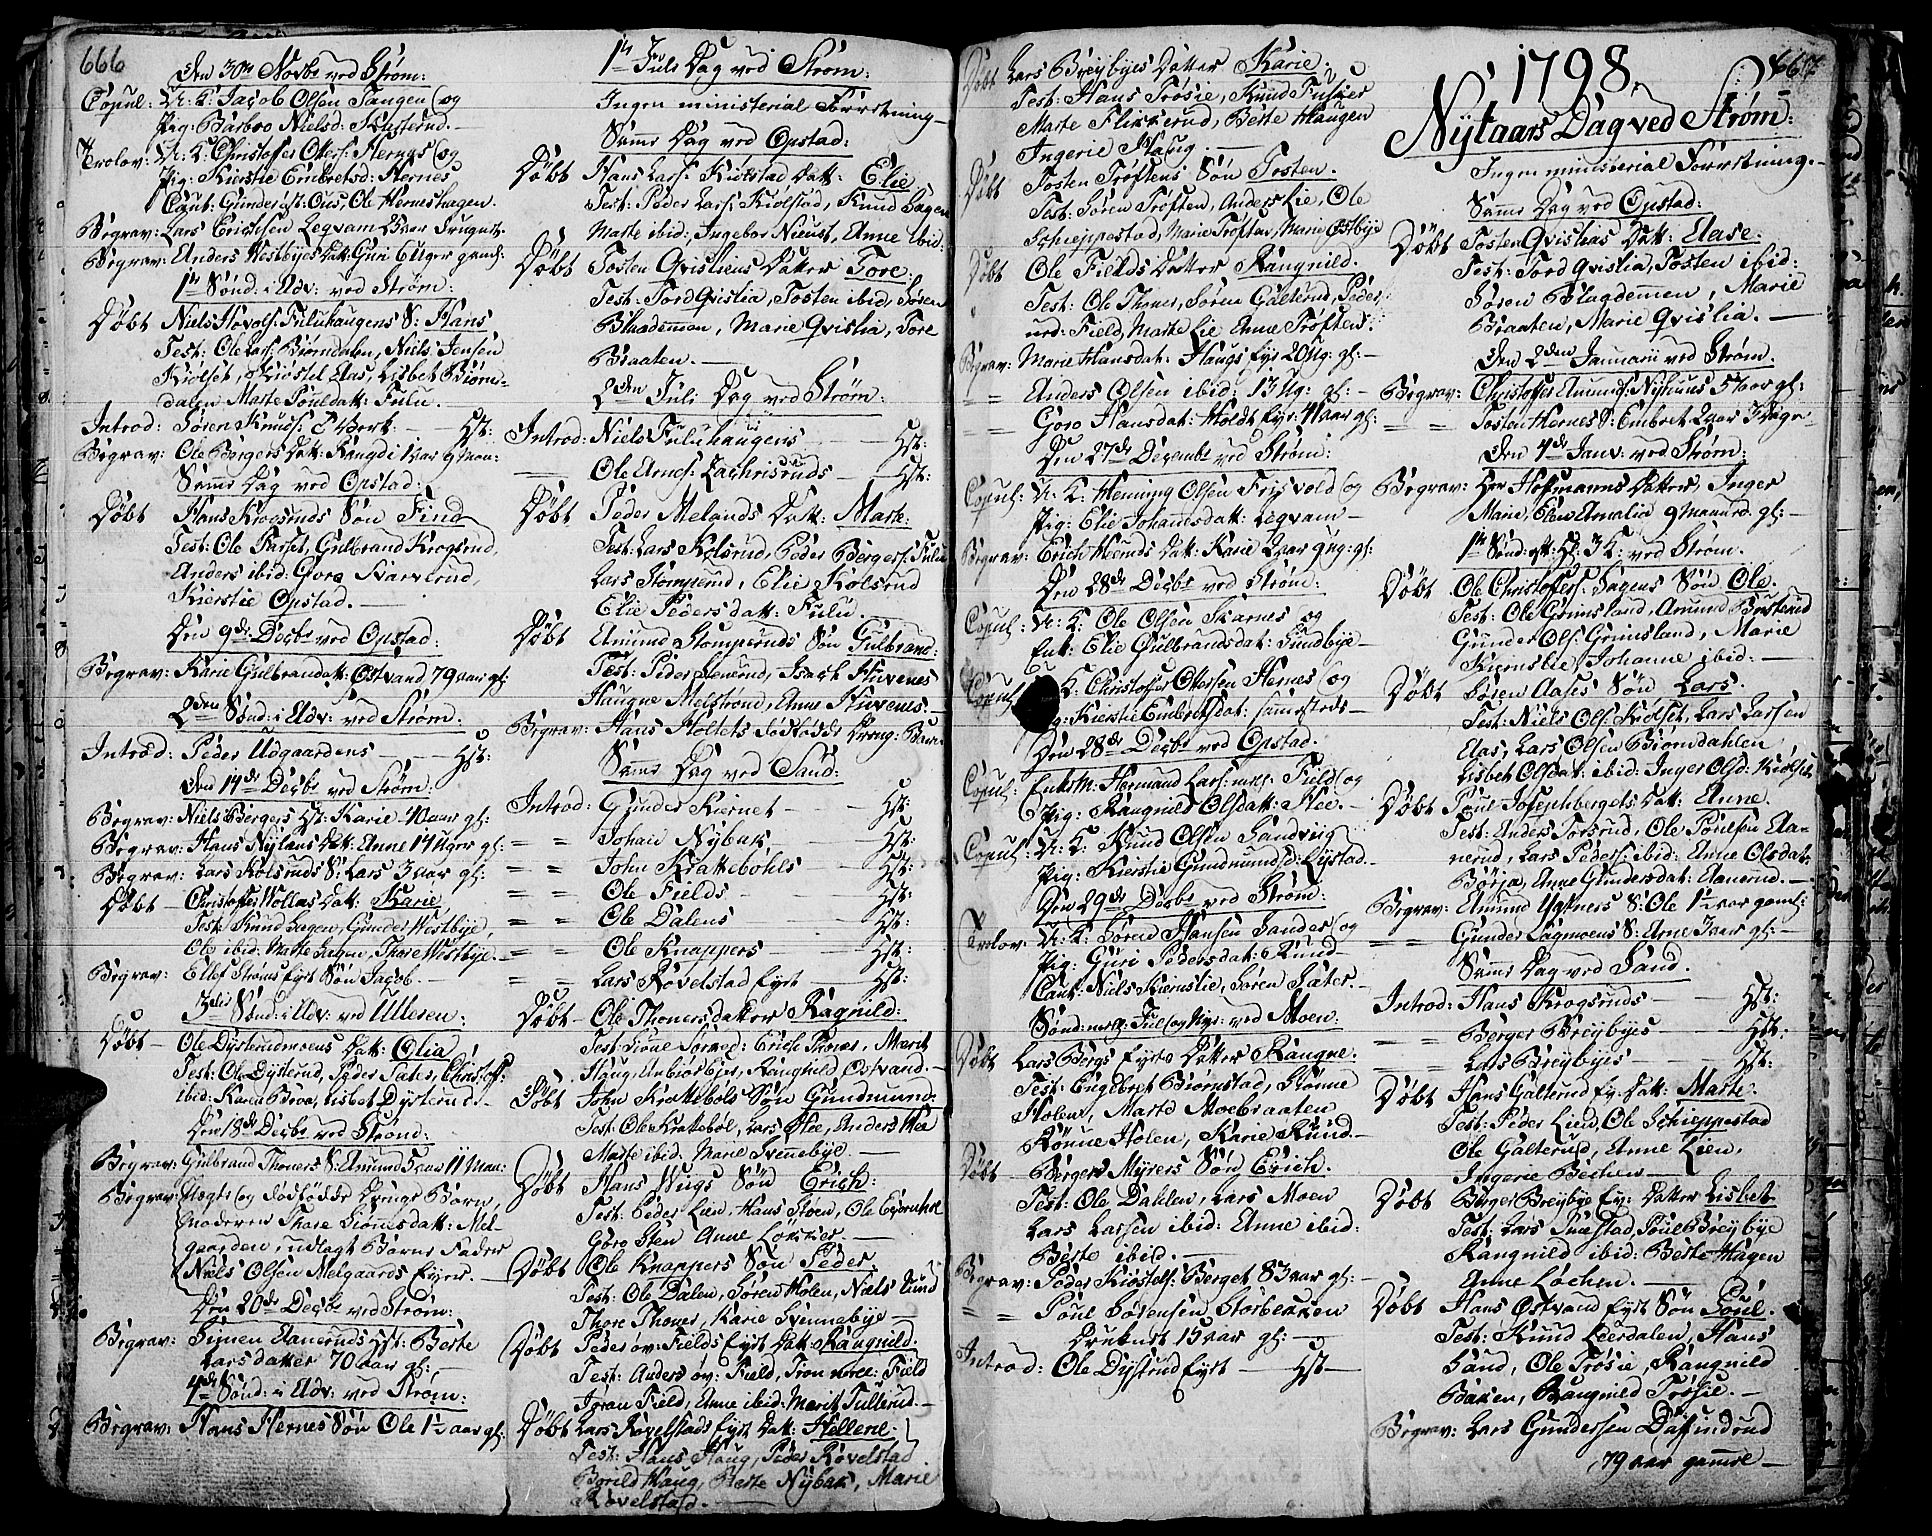 666
Den 30te Novbr ved Strøm:
Copul: U: K: Jacob Olsen Tangen (og
Pig: Barbro Nielsd: Kusterud. —
Trolov: U: K: Christoffer Otters: Hernes (og
Pig: Kierstie Embretsd: Hernes
Caut: Gunder Ous, Ole Herneshagen.
Begrav: Lars Erichsen Legvam
Begrav: Anders Westbyes Datt: Guri 6 Uger gml:
1te Sønd: i Adv: ved Strøm:
Døbt Niels Hovels: Fuluhaugens S: Hans
Test: Ole Lars: Biørndalen, Niels Jensen
Kiølset, Kiøstel Aas, Lisbet Biørn-
dalen Marte Poulsdatt: Fulu. —
Introd: Søren Knuds: — Hst:
Begrav: Ole Bergers Datt: Rangdi 1 aar 9 Maan:
Samme Dag ved Opstad:
Døbt Hans Krogsruds Søn Find
Test: Ole Harset, Gulbrand Krogsrud,
Anders ibid: Goro Skarverud,
Kierstie Opstad. —
Den 9de Decbr ved Opstad:
Begrav: Karie Gulbrandsdatt: Ostvand 79 aar gl:
2den Sønd: i Adv: ved Strøm:
Introd: Peder Udgaardens — Hst:
Den 14de Decbr ved Strøm:
Begrav: Niels Bergers Hst: Karie 40 aar gl:
Begrav: Hans Nylands Datt: Anne 14 Uger gl:
Begrav: Lars Kolsruds S: Lars 3 aar gl:
Døbt — Christoffer Wollas Datt: Karie
Test: Knud Hagen, Gunder Westbye,
Ole ibid: Marte Hagen, Thore Westbye. —
Begrav: Ellef Strøms Eyet Søn Jacob. —
3die Sønd: i Adv: ved Ulleren:
Døbt — Ole Dysterudmoens Datt: Olia
Test: Ole Dysterud, Peder Sater, Christoff:
ibid: Karen Broe, Lisbet Dysterud. —
Den 18de Decbr ved Strøm:
Begrav: Gulbrand Thoners S: Amund 5 aar 11 Maan:
Begrav: Uægte (og dødfødde Drenge Børn,
Moderen Thore Simensdatt: Mel-
gaarden, udlagt Barne Fader
Niels Olsen Melgaards Eyer. —
Den 20de Decbr ved Strøm:
Begrav: Simen Aaneruds Hst: Berte
Larsdatter 70 aar gl: —
4de Sønd: i Adv: ved Strøm:
Begrav: Hans Hernes Søn Ole 1½ aar gl:
1te Jule Dag ved Strøm:
Ingen ministerial Forretning —
Samme Dag ved Opstad:
Døbt Hans Lars: Kiølstad Datt: Elie
Test: Peder Lars: Kiølstad, Knud Hagen
Marte ibid: Ingebor Nieust, Anne ibid:
Døbt Tosten Qvisliens Datter Tore
Test: Tord Qvislia, Tosten ibid, Søren
Bladdemmen, Marie Qvislia, Tore
Braaten. —
2den Jule Dag ved Strøm:
Introd: Niels Fuluhaugens — Hst:
— Ole Arnes: Zachrisruds — Hst:
Døbt Peder Melands Datt: Marte:
Test: Lars Kolsrud, Peder Bergers: Fulu
Lars Stomperud, Elie Kolsrud
Elie Pedersdatt: Fulu. —
Døbt Amund Stomperuds Søn Gulbrand:
Test: Peder Stenerud, Isach Huvenes
Haugne Melstrond, Anne Huvenes. —
Begrav: Hans Holtets dødfødde Dreng: Barn
Samme Dag ved Sand:
Introd: Gunder Kiernet — Hst:
= = Johan Nybak — Hst:
= = John Krakkebøls — Hst:
= = Ole Fields — Hst:
= = Ole Dalens — Hst:
= = Ole Knappers — Hst:
= = Lars Rovelstad Eyet — Hst:
Døbt — Ole Thoners datter Ragnild:
Test: Erich Thoner, Marit
Haug, Ranghild Ostvand. —
Døbt John Krakkebøls Søn Gundmund:
Test: Ole Krakkebøl, Lars Slee, Anders Slee
Marte ibid: Marie Svennebye —
Døbt Hans Wiigs Søn Erich:
Test: Peder Lien, Hans Støen, Ole Biørnholt
Goro Sten Anne Løkker —
Døbt Ole Knappers Søn Peder
Test: Ole Dalen, Søren Holen, Niels Lund
Thore Thoner, Karie Svennebye —
Døbt Peder øv: Fields Eyet Datt: Rangnild
Test: Anders øv: Field, Tron nordr: Field
Joran Field, Anne ibid: Marit Tullerud. —
Døbt Lars Rovelstads Eyet Datt: Hellene:
Test: Hans Haug, Peder Rovelstad
Boreld Haug, Berte Nybak, Marie
Rovelstad. —
Døbt Lars Breybyes Datter Karie:
Test: Hans Trøsie, Knud Fusker
Marte Flikkerud, Berte Haugen
Ingerie Haug. —
Døbt Tosten Trøftens Søn Tosten.
Test: Søren Trøften, Anders Lie, Ole
Schieppestad, Marie Trøften, Marie Ostbye
Døbt Ole Fields Datter Rangnild.
Test: Ole Thoner, Søren Galterud, Peder
nrd: Field, Marte Lie Anne Trøften.
Begrav: Marie Hansdat: Haugs Eye 20 Ug: gl: —
= = Anders Olsen ibid: 13 Ug: gl: —
= = Goro Hansdat: Moldt Eye: 41 aar gl:
Den 27de Decembr ved Strøm:
Copul: U: K: Henning Olsen Frisvold (og
Pig: Elie Johannesdat: Legvam —
Begrav: Erich Hernes Datt: Karie 2 aar 9 Ug: gl:
Den 28de Decbr ved Strøm:
Copul: U: K: Ole Olsen Skarnes og
Enk: Elie Gulbrandsdat: Sundbye —
Copul: K: Christoffer Ottersen Hernes (og
Pig: Kierstie Embretsdat: sammesteds —
Den 28de Decbr ved Opstad:
Copul: Enkem: Hermand Lars: Field (og
Pig: Rangnild Olsdatt: Slee. —
Copul: U: K: Knud Olsen Sandvig (
Pig: Kierstie Gundmundsd: Lystad —
Den 29de Decbr ved Strøm:
Trolov: U: K: Søren Hansen Sander (og
Pig: Guri Pedersdat: Rund —
Caut: Niels Kiernslie, Søren Sater. —
Sønd: mellem Jul (og Nyt: ved Moen.
Døbt Lars Bergs Eyets Datter Rangne:
Test: Engebret Biørnstad, Stønne
Holen, Marte Moebraaten
Rønne Holen, Karie Rund —
Døbt Bergers Myrers Søn Erich:
Test: Ole Dahlen, Lars Moen
Lars Larsen ibid: Anne ibid:
Berte ibid. —
Begrav: Peder Kiøstels: Berget 83 aar gl: —
= = Poul Sørensen Storbekken
Druknet 15 aar gl: —
Introd: Ole Dystrud Eyet — Hst —
667
1798.
Nytaars Dag ved Strøm:
Ingen ministerial Forretning. —
Samme Dag ved Opstad:
Døbt Tosten Qvislias Datt: Aase:
Test: Tord Qvislia, Tosten ibid:
Søren Blagdemmen, Marie
Braaten, Marie Qvislia. —
Den 2den Januarii ved Strøm.
Begrav: Christoffer Amunds: Nyhuus 56 aar gl:
= = Tosten Hernes S: Embret 2 aar
Den 4de Janv: ved Strøm:
Begrav: Herr Hofmanns Datter, Inger
Marie, Elen Amalia 9 Maaned: gl: —
1te Sønd: eft: H: 3 K: ved Strøm:
Døbt Ole Christoffers: Hagens Søn Ole.
Test: Ole Grimsland, Amund Busterud
Gunder Ols: Grimsland, Marie
Kiernslie Johanne ibid: —
Døbt Søren Aases Søn Lars.
Test: Niels Ols: Kiølset, Lars Larsen
Aas, Lars Olsen Biørndahlen
Lisbet Olsdat: ibid: Inger Olsd: Kiølset
Døbt Poul Josephbergets Datt: Anne.
Test: Anders Torsrud, Ole Poulsen Aa-
nerud, Lars Peders: ibid: Anne Olsdat:
Børja, Anne Gundersdat: Aanerud. —
Begrav: Amund S: Ole 1½ aar gaml:
= = Gunder Lagmoens S: Arne 3 aar gl: —
Samme Dag ved Sand.
Introd: Hans Krogsruds — Hst:
= = Berger Breybyes — Hst:
= = Lars Breybyes — Hst:
Døbt Hans Galterud Ey: Datt: Marte:
Test: Peder Lien, Ole Schieppestad
Ole Galterud, Anne Lien,
Ingerie Becken —
Døbt Berger Breybye Ey: Datter Lisbet
Test: Lars Snestad, Poul Breybye
Rangnild ibid: Berte Hagen
Anne Løchen. —
Døbt Hans Ostvand Eyet Søn Poul.
Test: Knud Leerdalen, Hans
Sand, Ole Trøsie, Rangnild
Baken, Rangnild Trøsie. —
Begrav: Lars Gundersen Dafindrud
79 aar gammel —